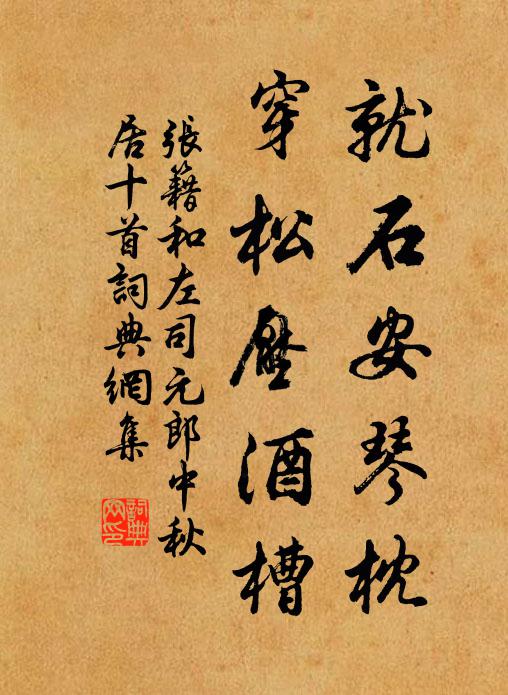 就石安琴枕
穿松壓酒槽
張籍和左司元郎中秋
居十首詞典網集
詞典
网印